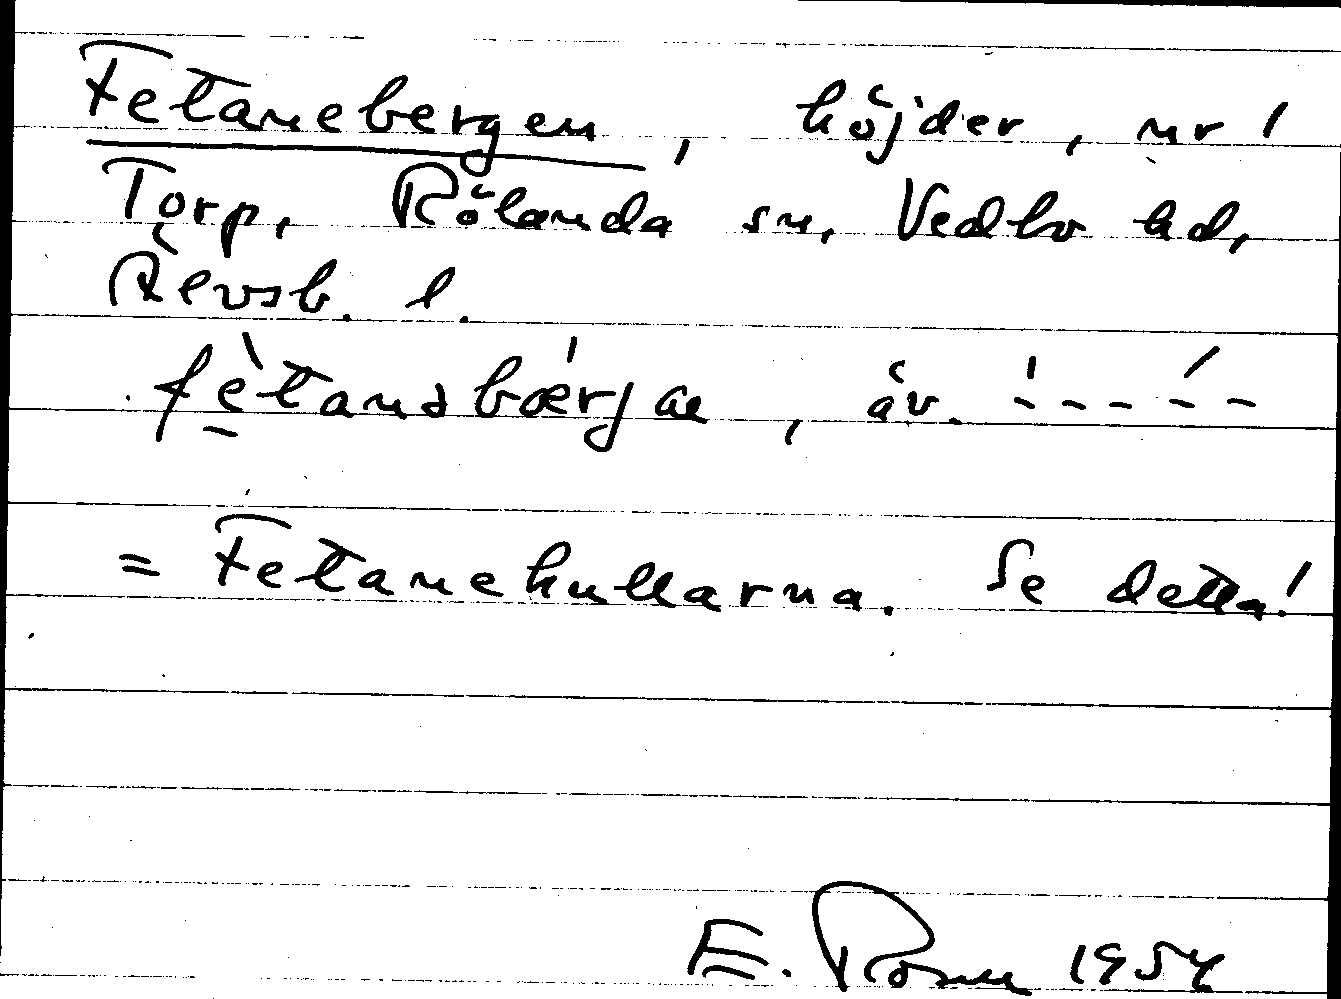 Fetanebergen, höjder, nr 1
Torp, Rölanda sn, Vedbo hd,
Älvsb. l.
= Fetanekullarna. Se detta!
E. Rosm 1954